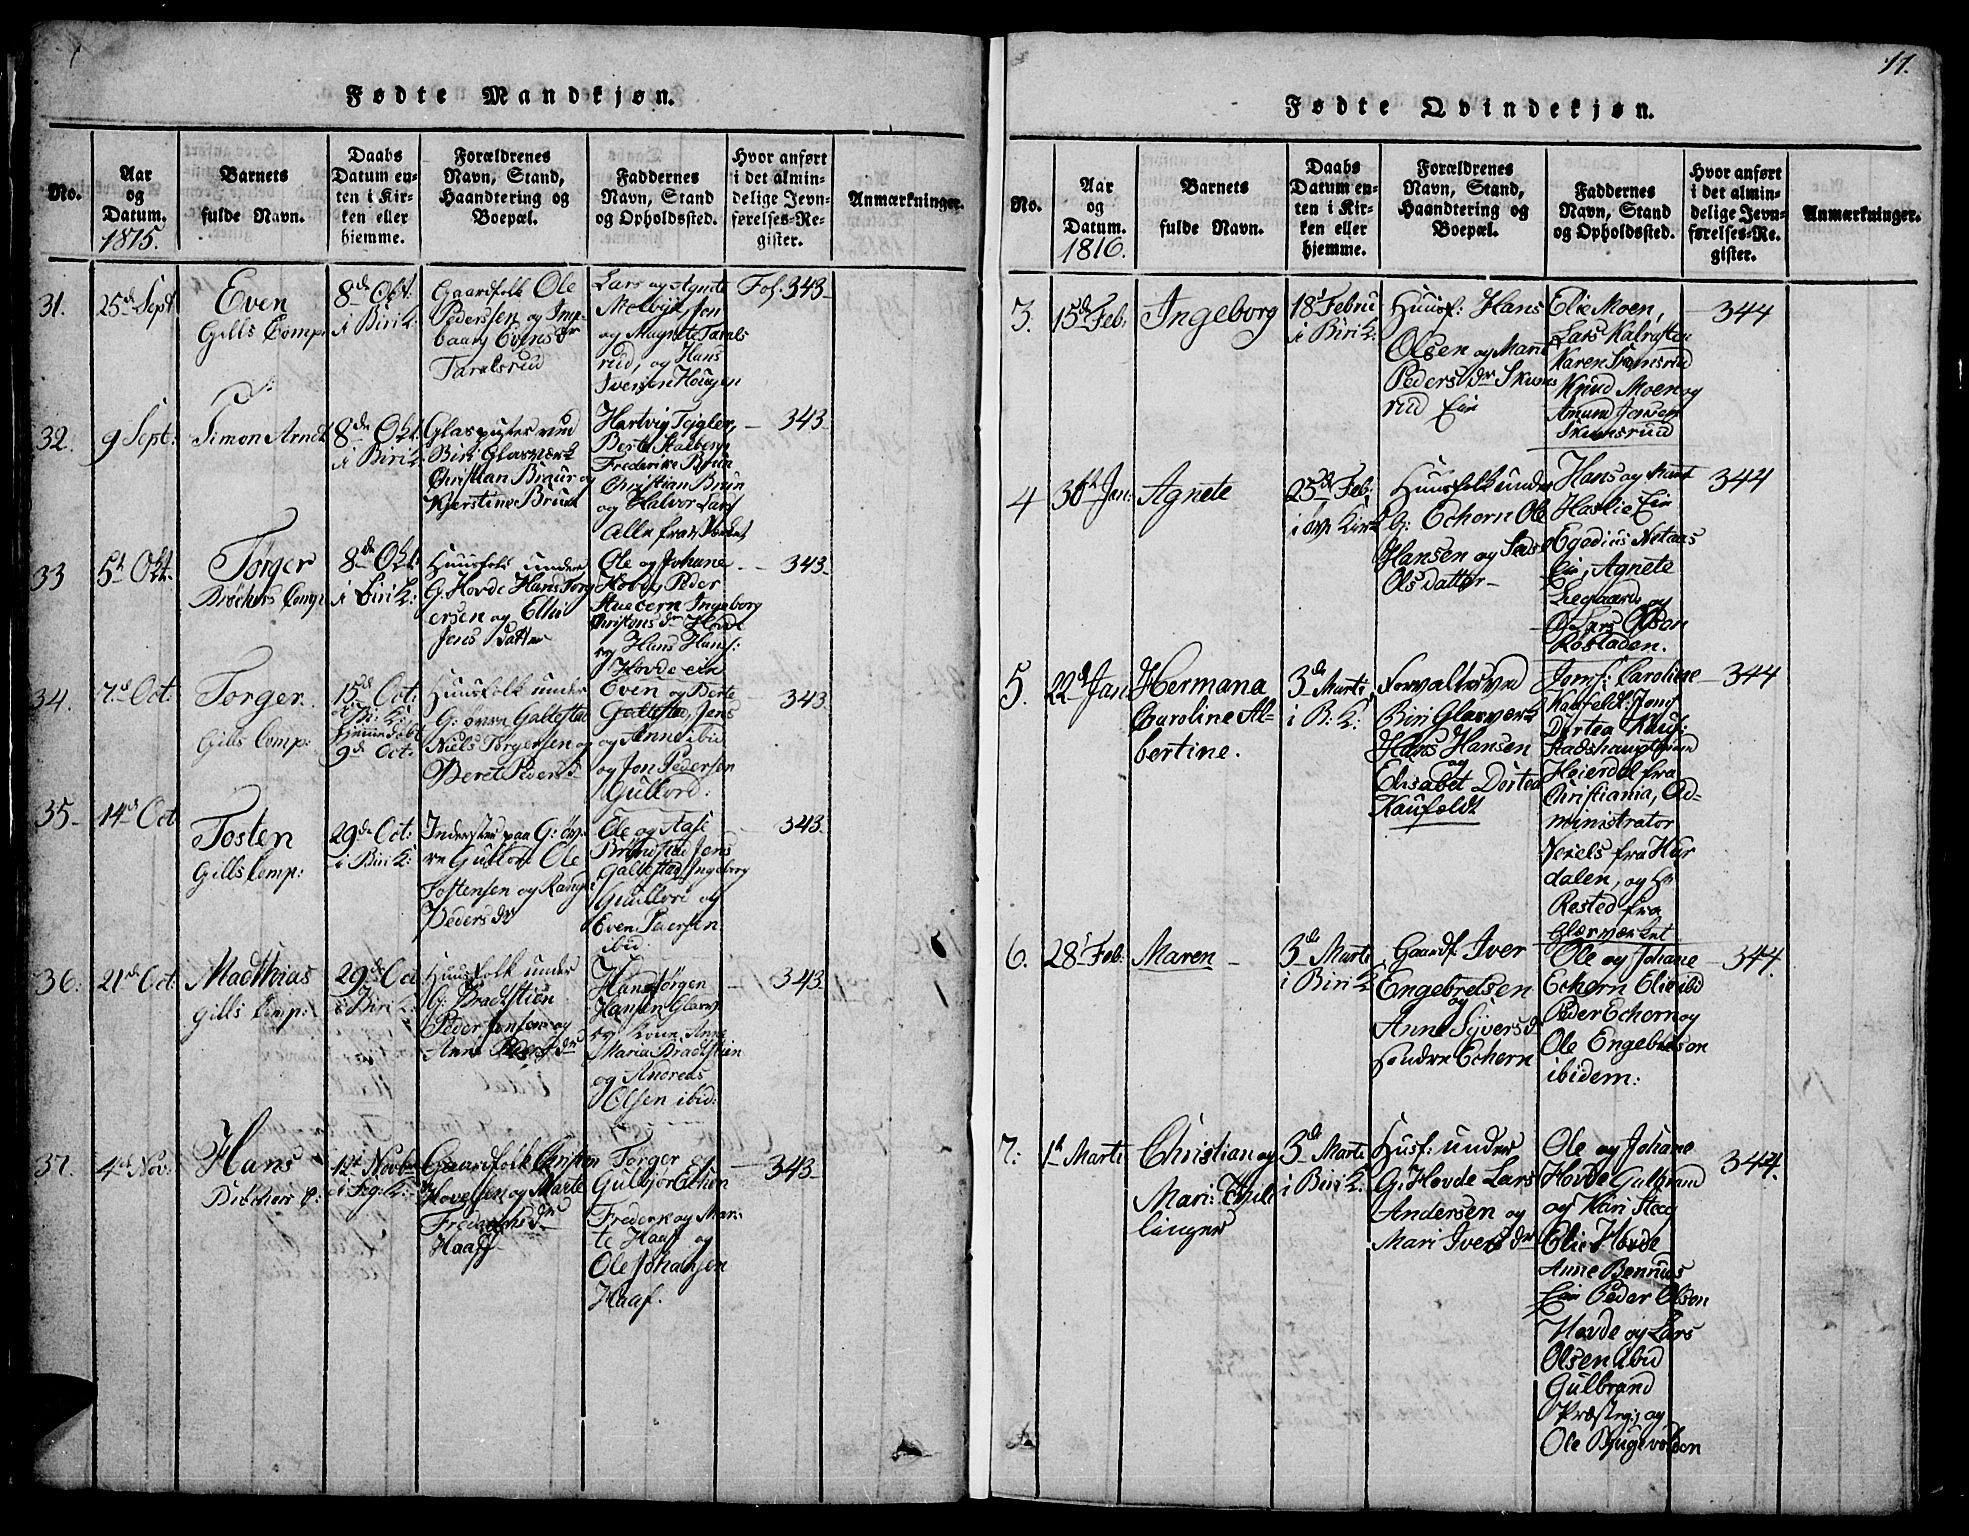 Fødte Mandkjøn.
No.
Aar
og
Datum.
1815.
Barnets
fulde Navn.
Daabs
Datum en-
ten i Kir-
ken eller
hjemme.
Forældrenes
Navn, Stand,
Haandtering og
Boepæl.
Faddernes
Navn, Stand
og Opholdssted.
Hvor anført
i det almin-
delige Jevn-
førelses-Re-
gister.
Anmærkninger.
31.
25de Sept
Even
Gills Comp:
8de Okt:
i Biri K:
Gaardfolk Ole
Pederssen og Inge-
baarg Evens dr
Taralsrud
Lars og Agnete
Melbye, Jon
og Magnete Tarals
rud, og Hans
Iversen Hougen
Fol. 343
32.
9 Sept:
Simon Arndt
8de Okt.
i Biri K:
Glaspuster ved
Biri Glasværk
Christian Bruun og
Kjerstine Bruun
Hartvig Tejgler,
Berte Stalberg
Frederike Bruun
Christian Brun
og Halvor Lars
Alle fra Værket
343
33
5te Okt.
Tørger
Brochers Comp
8de Okt:
i Biri K:
Huusfolk under
G. Hovde Hans Torg
ersen og Eli
Jens datter
Ole og Johane
Hovde, Peder
Ingeborg
Christens dr Hovde
og Hans Hans:
Hovde eie
343
34.
7de Oct:
Torger.
Gills Comp:
15de Oct.
i Bi: K:
hjemmedøbt
9de Oct:
Huusfolk under
G: øvre Gallestad
Niels Torgersen og
Beret Peders dr
Even og Berte
Gallestad, Jens
og Anne ibid
og Jon Pedersen
Gullord.
343
35
14de Oct
Tosten
Gills Comp:
29de Oct:
i Biri K:
Inderster paa G: øv-
re Gullord Ole
Tostensen og Rangni
Peders dr
Ole og Aase
Brundstad Jens
Galdestad, Ingeborg
Gullord og
Even Pedersen
ibid:
343
36.
21de Oct:
Madthias
Gills Comp:
29de Oct
i Biri K:
Huusfolk under
G: Bradtstien
Peder Jensen og
Anne Peders dr
Hans Jørgen
Hansen Glasv:
og Kone Anne
Maria Bradtstien
og Andreas
Olsen ibid:
343
37.
4de Nov:
Hans
Dischers C:
12t Novbr
i Sog: K:
Gaardfolk Christen
Hovelsen og Marte
Frederichs dr
Haaff
Torger og
Gulbjør Echern
Frederk og Mari-
te Haaf og
Ole Johansen
Haaf.
343
17.
Fødte Qvindekjøn.
No.
Aar
og
Datum.
1816.
Barnets
fulde Navn.
Daabs
Datum en-
ten i Kir-
ken eller
hjemme.
Forældrenes
Navn, Stand,
Haandtering og
Boepæl.
Faddernes
Navn, Stand
og Opholdssted.
Hvor anført
i det almin-
delige Jevn-
førelses-Re-
gister.
Anmærkninger.
3.
15de Feb:
Ingeborg
18 Febru
i Biri K:
Huusf: Hans
Olsen og Marit
Peders dr Skums
rud Eie
Elie Moen,
Lars Kalrusten
Karen Skumsrud
Knud Moen og
Amund Jensen
Skumsrud
344
4
30te Jan:
Agnete
25de Feb:
i øv: Kirk
Huusfolk under
G: Echern Ole
Hansen og
Olsdatter
Hans og Marit
Haslie Eie
Egedius Netaas
Eie, Agnete
Liegaard og
Lars Olsen
Rosladen.
344
5.
22de Jan
Hermana
Caroline Al-
bertine.
3de Marti
i B: K:
Forvalter ved
Biri Glasværk
Hans Hansen
og
Elisabet Dortea
Kaufeldt
Jomf: Caroline
Kaufeldt, Jomf
Dortea Kauf:
Stadshauptmand
Heierdal fra
Christiania, Ad-
ministrator
fra Hur
dalen, og Hr
Rested fra
Glasværket
344
6.
28 Feb:
Maren
3de Marti
i Biri K
Gaardf. Iver
Engebretsen
og
Anne Syvers d
søndre Echern
Ole og Johane
Echern Elie ibid
Peder Echern og
Ole Engebretsen
ibidem:
344.
7:
1te Marti
Christian og
Mari: Tvil
linger
3de Marti
i Biri K:
Husf: under
G: Hovde Lars
Andersen og
Mari Ivers dr
Ole og Johane
Hovde Gulbrand
og Kari Steeg
Elie Hovde
Anne Bennus
Eie Peder Olsen
Hovde og Lars
Olsen ibid
Gulbrand
Præsteg: og
Ole Bjugevolden
344.